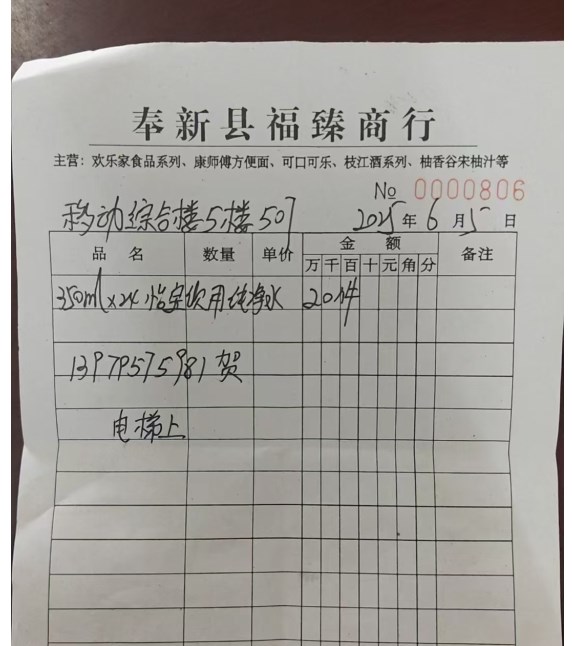 奉新县福臻商行
主营：欢乐家食品系列、康师傅方便面、可口可乐、枝江酒系列、柚香谷宋柚汁等
№ 0000806
移动综合楼5楼507 2025年6月5日
品 名 数量 单价 金 额 备注
万 千 百 十 元 角 分
350ml×24怡宝饮用纯净水 20件
13979575981 贺
电梯上